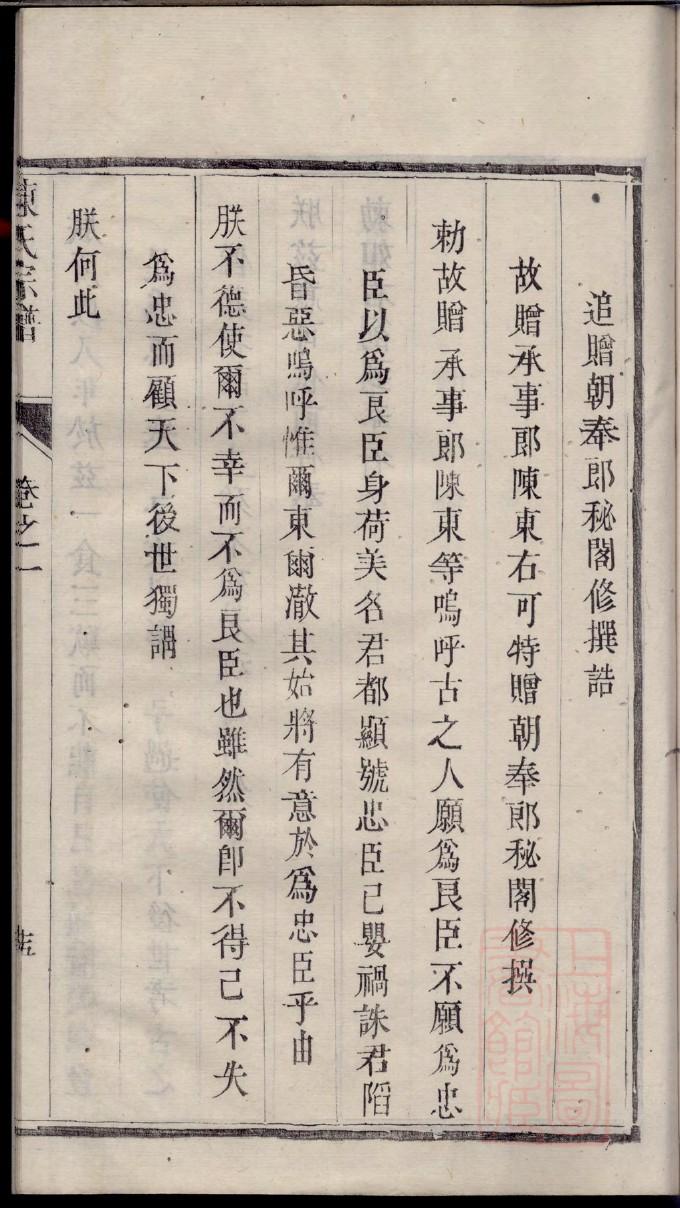 追贈朝奉郎秘閣修撰誥
故贈承事郎陳東右可特贈朝奉郎秘閣修撰
勅故贈承事郎陳東等嗚呼古之人願爲良臣不願爲忠
臣以爲良臣身荷美名君都顯號忠臣己嬰禍誅君陷
昏惡嗚呼惟爾東爾澈其始將有意於爲忠臣乎由
朕不德使爾不幸而不爲良臣也雖然爾卽不得已不失
爲忠而顧天下後世獨謂
朕何此
陳氏宗譜 卷之二
上海圖書館藏